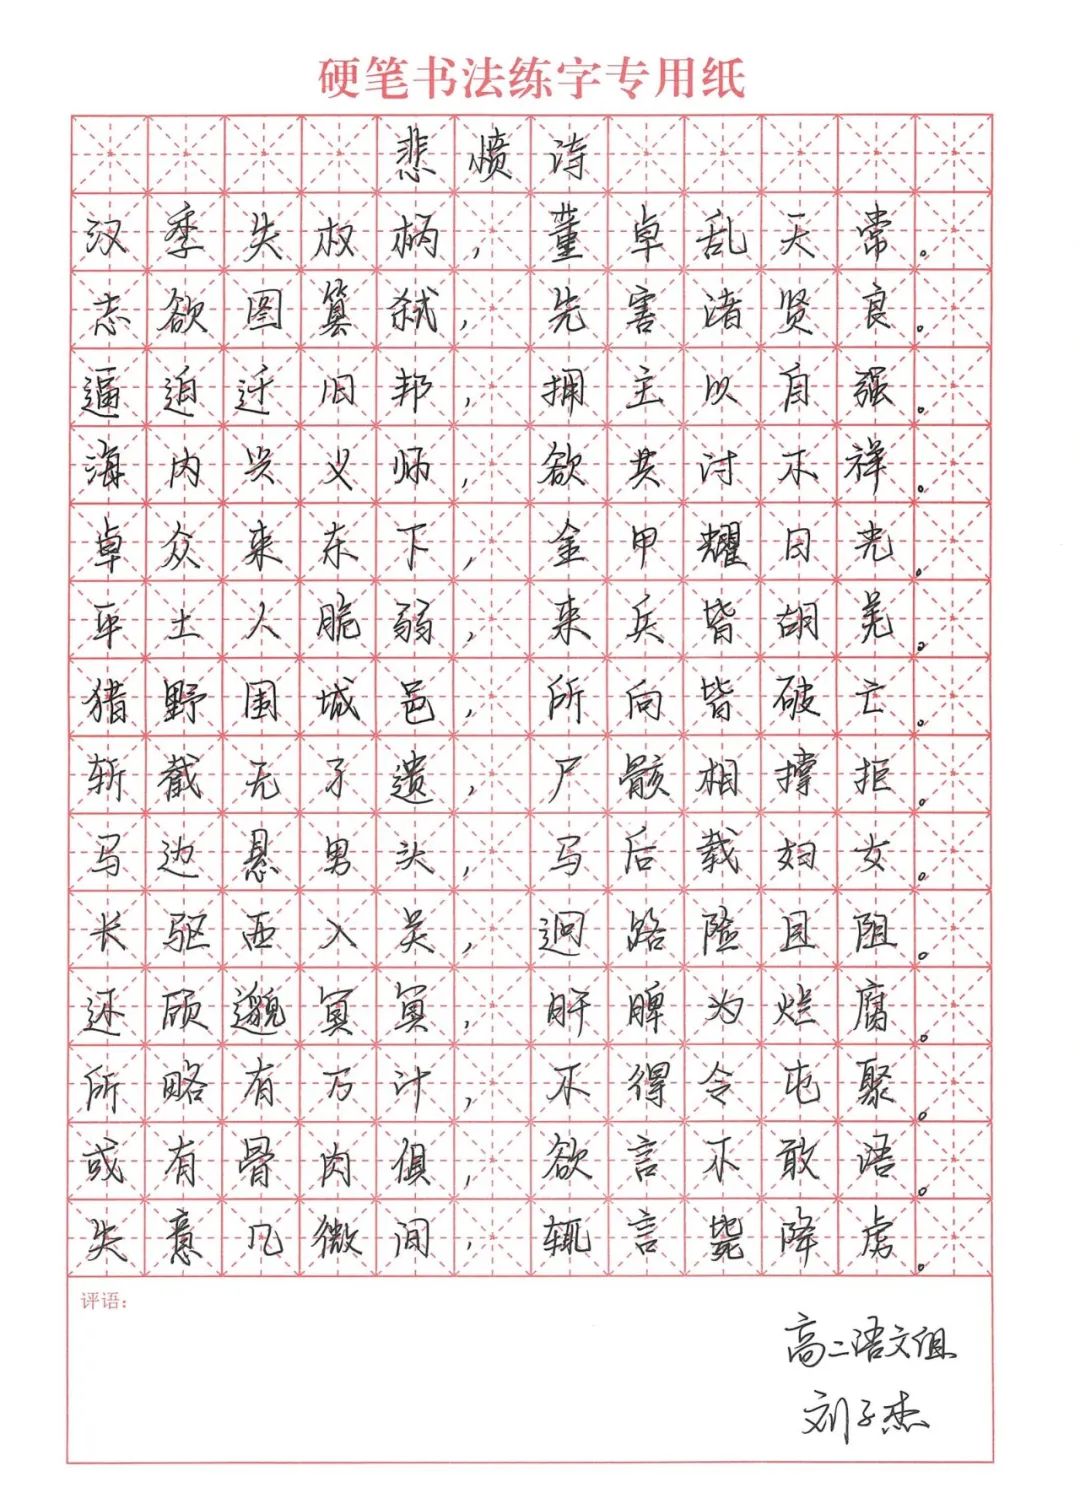 硬笔书法练字专用纸
悲愤诗
汉季失权柄，董卓乱天常。
志欲图篡弑，先害诸贤良。
逼迫迁旧邦，拥主以自强。
海内兴义师，欲共讨不祥。
卓众来东下，金甲耀日光。
平土人脆弱，来兵皆胡羌。
猎野围城邑，所向皆破亡。
斩截无孑遗，尸骸相撑拒。
马边悬男头，马后载妇女。
长驱西入关，迥路险且阻。
还顾邈冥冥，肝脾为烂腐。
所略有万计，不得令屯聚。
或有骨肉俱，欲言不敢语。
失意几微间，辄言毙降虏。
评语：
高二语文组
刘子杰